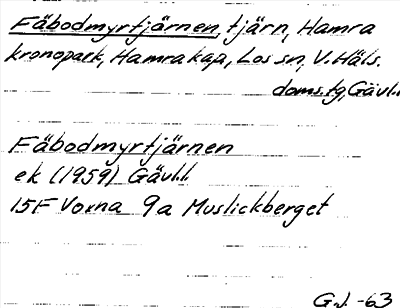 Fäbodmyrtjärnen, tjärn, Hamra
kronopark, Hamra kap, Los sn, V. Häls.
doms.tg, Gävl.
Fäbodmyrtjärnen
ek (1959) Gävl.
15F Voxna 9a Muslickberget
G.J. -63